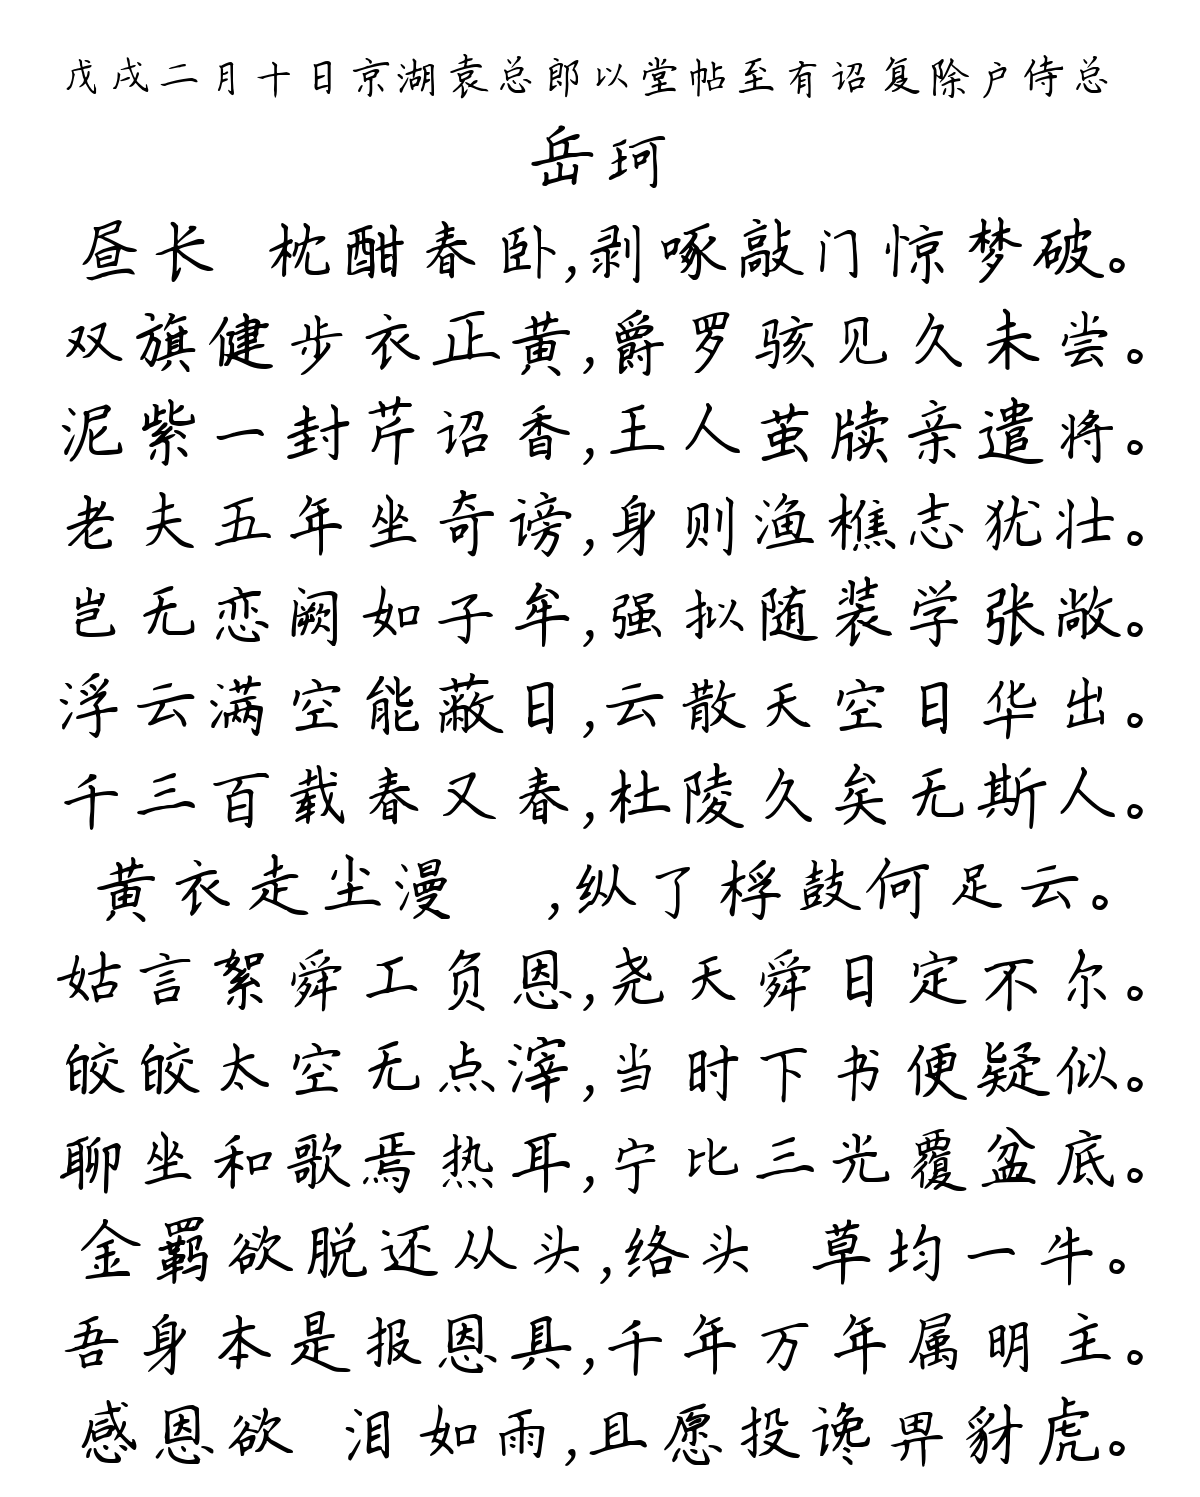 戊戌二月十日京湖袁总郎以堂帖至有诏复除户侍总
岳珂
昼长 枕酣春卧,剥啄敲门惊梦破。
双旗健步衣正黄,爵罗骇见久未尝。
泥紫一封芹诏香,王人茧牍亲遣将。
老夫五年坐奇谤,身则渔樵志犹壮。
岂无恋阙如子牟,强拟随装学张敞。
浮云满空能蔽日,云散天空日华出。
千三百载春又春,杜陵久矣无斯人。
黄衣走尘漫 ,纵了桴鼓何足云。
姑言絮舜工负恩,尧天舜日定不尔。
皎皎太空无点滓,当时下书便疑似。
聊坐和歌焉热耳,宁比三光覆盆底。
金羁欲脱还从头,络头 草均一牛。
吾身本是报恩具,千年万年属明主。
感恩欲 泪如雨,且愿投谗畀豺虎。